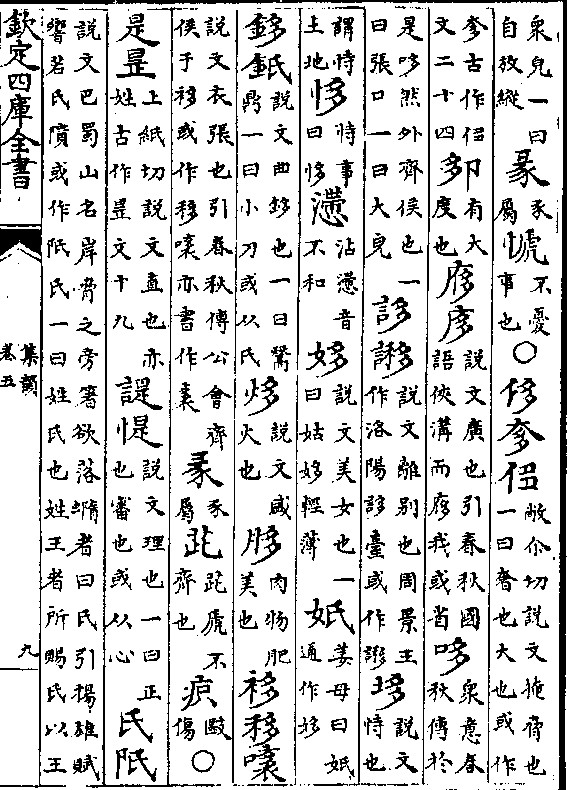 衆皃一曰自放縱 彖豕屬 㦆不憂事也 ○ 侈奓𠈅敞尒切說文掩脅也一曰奢也大也或作
奓古作𠈅文二十四 卶有大度也 㢋㢁說文廣也引春秋國語俠溝而㢋我或省 哆衆意春秋傳於
是哆然外齊侯也一曰張口一曰大皃 誃謻說文離別也周景王作洛陽誃臺或作謻 垑說文恃也
謂恃土地 恀恃事曰恀 㶍沾㶍音不和 姼說文美女也一曰姑姼輕薄 妧姜母曰妧通作姼
鉹䤠說文曲鉹也一曰鬵鼎一曰小刀或从氏 烙說文盛火也 胣肉物肥美也 袳移㰟
說文衣張也引春秋傳公會齊侯于袳或作移㰟亦書作䘠 彖豕屬 跐跐虒不齊也 㾆毆傷 ○
是昰上紙切說文直也亦姓古作昰文十九 諟惿說文理也一曰正也審也或从心 氏阺
說文巴蜀山名岸脅之旁箸欲落𡐦者曰氏引揚雄賦響若氏隤或作阺氏一曰姓氏也姓王者所賜氏以王
欽定四庫全書
集韻
卷五
九